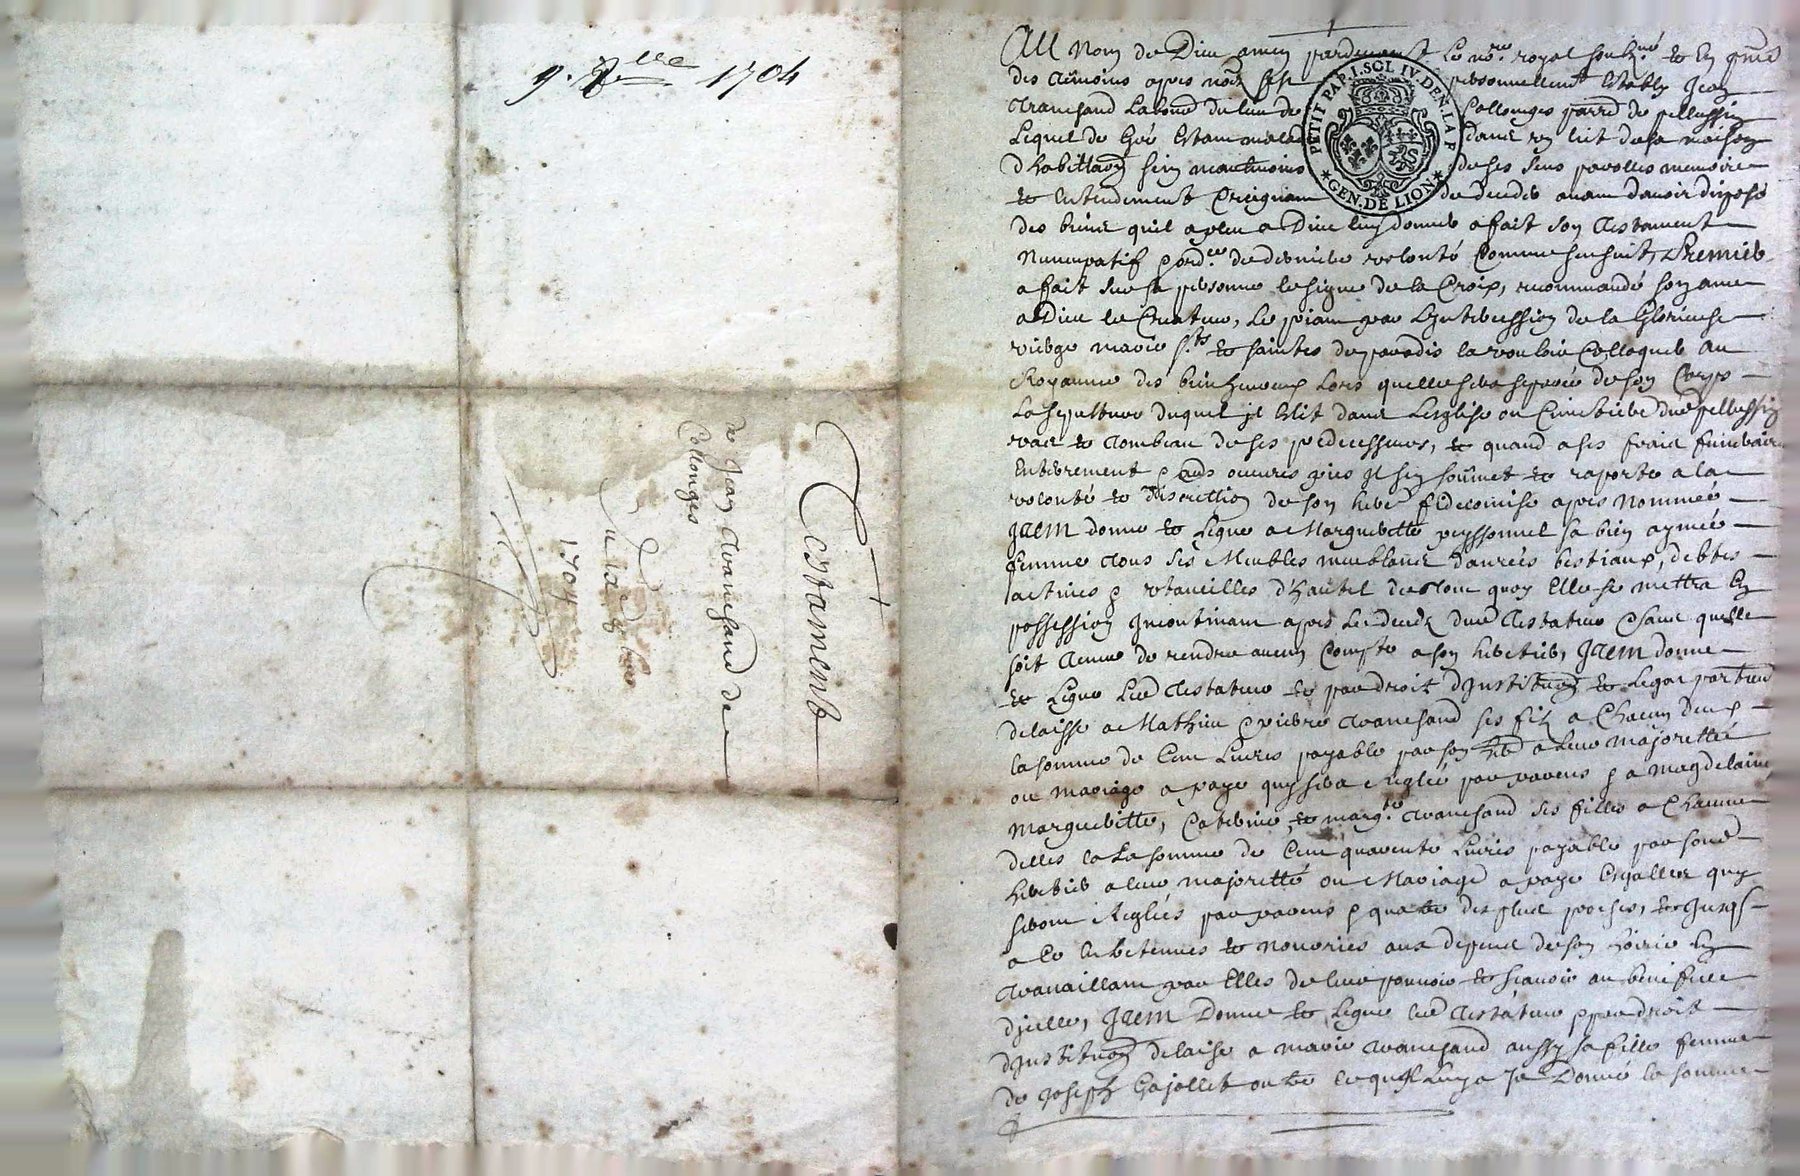 9. 8bre 1704
Testament
de Jean Tranchand de
Collonges
du
1704
PETIT PAP. 1. SOL IV. DEN. LA F.
GEN. DE LION
AU Nom de Dieu amen pardevant Le nore. royal soubzné. et En pnce
des tesmoins apres nõez sest personnellemt Estably Jean
Tranchand Laboureur du lieu de Collonges parre de pellussin
Lequel de Gré Estant malade dans un lit de sa maison
d'habittaon sein neantmoins de ses sens parolles memoire
et Entendement Creignant de deceder avant davoir disposé
des biens quil a pleu a Dieu luy donner a fait son Testament
Nuncupatif et ordce de derniere volonté Comme sensuit, Premier
a fait sur sa personne le signe de la Croix, recommandé son ame
a Dieu le Createur, Le priant par Lintercession de la Glorieuse
vierge marie sts et saintes de paradis la vouloir Colloquer au
Royaume des bienheureux Lors quelle sera separée de son Corps
La sepulture duquel il Eslit dans Lesglise ou Cimetiere dud pellussin
vas et tombeau de ses predecesseurs, et quand a ses frais funeraires
Enterrement et aux oeuvres pies Il sen soumet et raporte a la
volonté et discrettion de son here fidecomise apres nommée
ITEM donne et Legue a Margueritte peyssonnel sa bien aymée
femme tous ses Meubles meublans danrées bestiaux, debtes
actives et vtancilles d'hautel de tout quoy Elle se mettra En
possession Incontinant apres Le deces dud Testateur sans quelle
soit tenue de rendre aucun Compte a son heritier, ITEM donne
et Legue Led Testateur et par droit dInstitũon et Legat particu
delaisse a Mathieu et pierre Tranchand ses filz a Chacun deux
la somme de Cent Livres payable par son hed a leur majoritté
ou mariage a paye quy sera Reglée par parens et a magdelaine
Marguerite, Caterine, et margte Tranchand ses filles a Chacune
delles la La somme de Cent quarente Livres payable par sond
heritier a leur majoritté ou Mariage a paye Esgalles quy
seront Reglées par parens et quattre des plus proches, et Jusqs
a Ce Entretenues et nourries aux depens de son hoirie En
travaillant par Elles de leur pouvoir et sçavoir au benefice
dicelle, ITEM Donne et Legue led Testateur et par droit
dInstitũon delaisse a marie Tranchand aussy sa fille femme
de Joseph Gajollet outre ce quil Luy a Ja Donné la somme